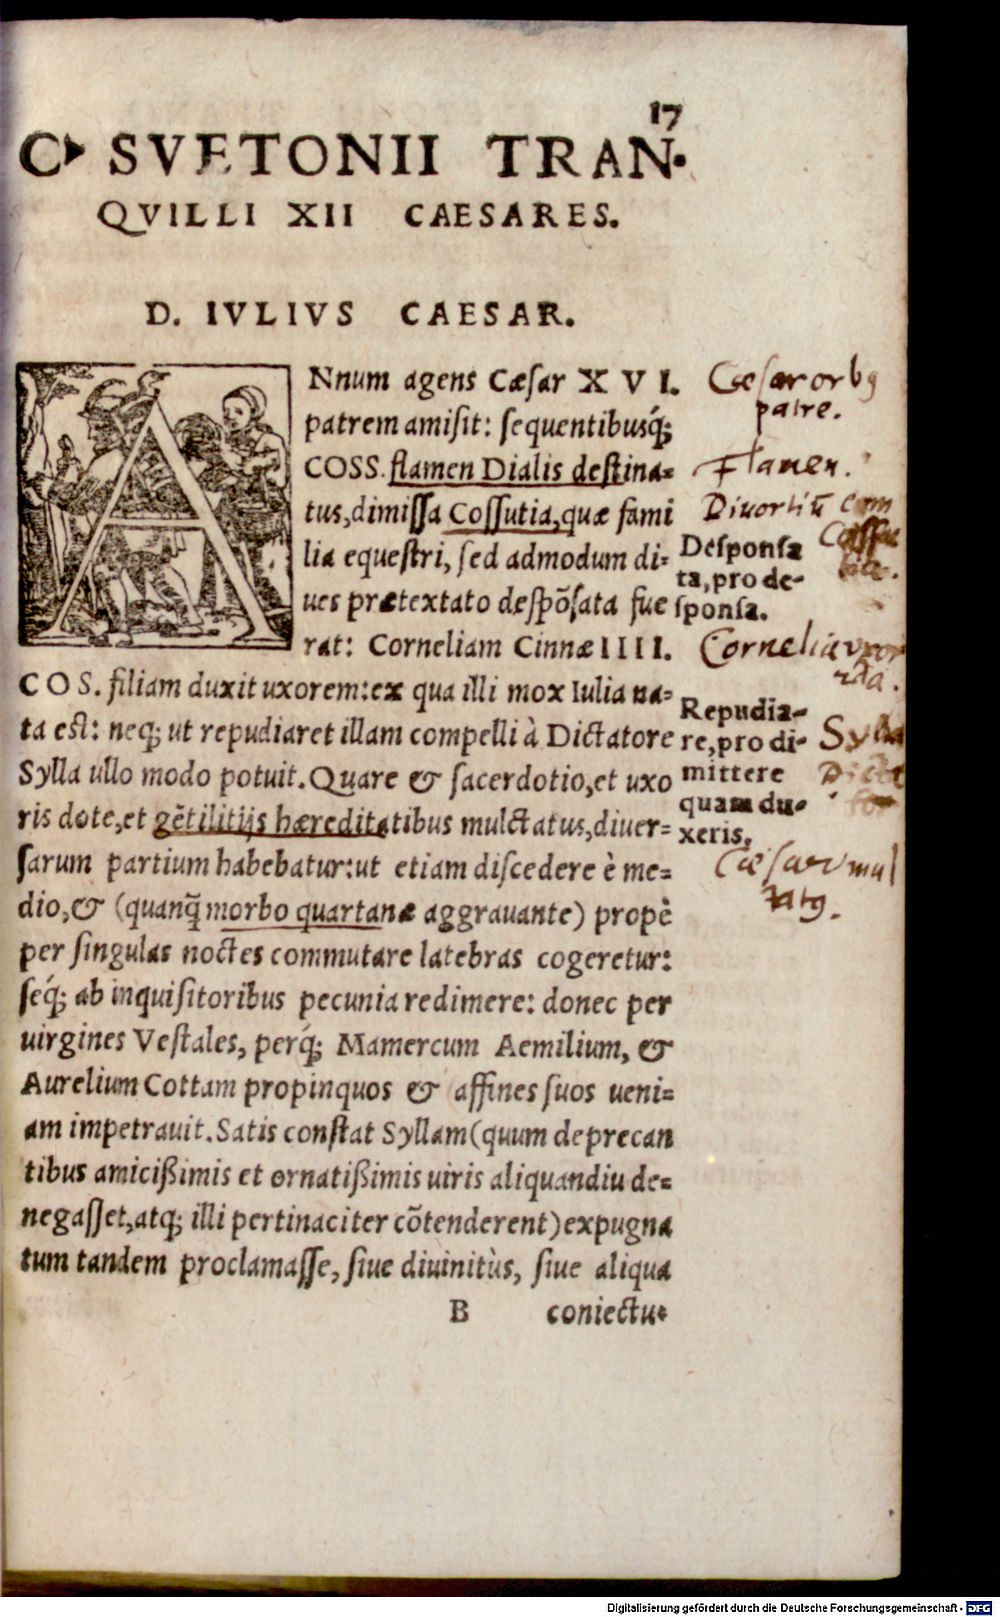 17
C. SVETONII TRAN.
QVILLI XII CAESARES.
D. IVLIVS CAESAR.
ANnum agens Cæsar XVI.
patrem amisit: sequentibusq́;
COSS. flamen Dialis destina=
tus, dimissa Cossutia, quæ fami
lia equestri, sed admodum di=
ues prætextato despōsata fue
rat: Corneliam Cinnæ IIII.
COS. filiam duxit uxorem: ex qua illi mox Iulia na=
ta est: neq; ut repudiaret illam compelli à Dictatore
Sylla ullo modo potuit. Quare & sacerdotio, et uxo
ris dote, et gētilitijs hæreditatibus mulctatus, diuer=
sarum partium habebatur: ut etiam discedere è me=
dio, & (quanq̃ morbo quartanæ aggrauante) propè
per singulas noctes commutare latebras cogeretur:
seq́; ab inquisitoribus pecunia redimere: donec per
uirgines Vestales, perq́; Mamercum Aemilium, &
Aurelium Cottam propinquos & affines suos ueni=
am impetrauit. Satis constat Syllam (quum deprecan
tibus amicißimis et ornatißimis uiris aliquandiu de=
negasset, atq; illi pertinaciter cōtenderent) expugna
tum tandem proclamasse, siue diuinitùs, siue aliqua
B coniectu=
Cæsar orbꝯ
patre.
Flamen.
Diuortiū cum
Cossu
tia.
Desponsa
ta, pro de=
sponsa.
Cornelia uxor
Repudia=
re, pro di=
mittere
quam du=
xeris.
Sylla
Dicta
tor
Cæsar mul
tatꝯ.
Digitalisierung gefördert durch die Deutsche Forschungsgemeinschaft - DFG